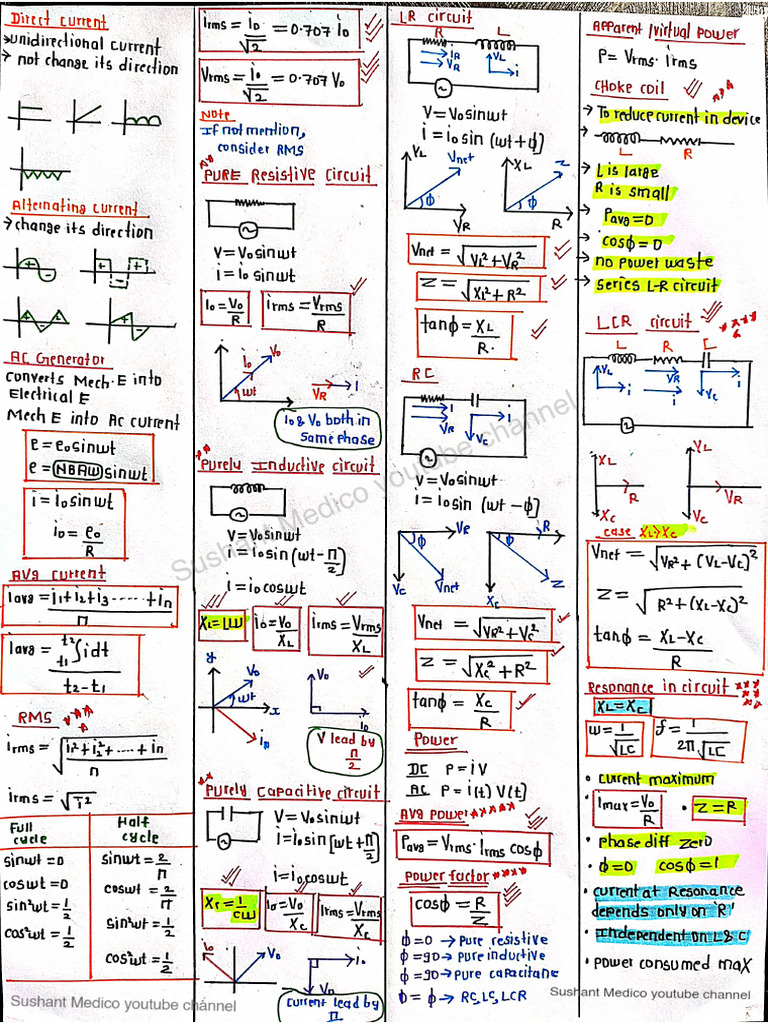 Direct current
→ unidirectional current
→ not change its direction
Alternating current
→ change its direction
+
-
+
+
-
+
+
+
AC Generator
converts Mech. E into
Electrical E
Mech E into AC current
e = e₀sinωt
e = (NBAω)sinωt
i = i₀sinωt
i₀ = e₀/R
Avg current
iavg = i₁+i₂+i₃ ------ +in / n
iavg = t₁∫t₂ idt / t₂-t₁
RMS
irms = √(i₁²+i₂²+ ---- +in / n)
irms = √I²
Full cycle
Half cycle
sinωt = 0
sinωt = 2/π
cosωt = 0
cosωt = 2/π
sin²ωt = 1/2
sin²ωt = 1/2
cos²ωt = 1/2
cos²ωt = 1/2
Sushant Medico youtube channel
irms = i₀/√2 = 0.707 i₀
Vrms = i₀/√2 = 0.707 V₀
Note
If not mention,
consider RMS
PURE Resistive Circuit
V = V₀sinωt
i = i₀ sinωt
i₀ = V₀/R
irms = Vrms/R
i₀
V₀
ωt
VR
I
i₀ & V₀ both in
same phase
Purely Inductive circuit
V = V₀sinωt
i = i₀sin(ωt-π/2)
i = i₀cosωt
XL = Lω
i₀ = V₀/XL
irms = Vrms/XL
y
V₀
ωt
x
i₀
V₀
i₀
V lead by
π/2
Purely Capacitive circuit
V = V₀sinωt
i = i₀sin[ωt+π/2)
i = i₀cosωt
Xc = 1/cω
i₀ = V₀/Xc
Irms = Vrms/Xc
i₀
V₀
i₀
V₀
current lead by
π
LR circuit
R
L
iR
VR
VL
i
V = V₀sinωt
i = i₀sin (ωt+ϕ)
VL
Vnet
ϕ
VR
XL
Z
ϕ
R
Vnet = √VL²+VR²
Z = √XL²+R²
tanϕ = XL/R
RC
I
VR
i
Vc
V = V₀sinωt
i = i₀sin (ωt-ϕ)
VR
ϕ
Vc
Vnet
R
ϕ
Xc
Z
Vnet = √VR²+Vc²
Z = √Xc²+R²
tanϕ = Xc/R
Power
DC P = iV
AC P = i(t) V(t)
Avg Power
Pavg = Vrms · irms cosϕ
Power factor
cosϕ = R/Z
ϕ=0 → Pure resistive
ϕ=90 → Pure inductive
ϕ=90 → Pure capacitane
0= ϕ → RC, LC, LCR
Apparent / virtual Power
P = Vrms · irms
CHOKE COIL
→ To reduce current in device
L
R
→ L is large
R is small
→ Pavg=0
→ cosϕ=0
→ no power waste
→ series L-R circuit
LCR circuit
L
R
C
VL
i
VR
i
Vc
i
XL
R
Xc
VL
VR
Vc
case XL>Xc
Vnet = √VR²+(VL-Vc)²
Z = √R²+(XL-Xc)²
tanϕ = XL-Xc/R
Resonance in circuit
XL=Xc
ω = 1/√LC
f = 1/2π√LC
• current maximum
Imax = V₀/R
• Z=R
• phase diff zero
• ϕ=0 cosϕ=1
• current at Resonance
depends only on 'R'
• Independent on L & C
• power consumed max
Sushant Medico youtube channel
Sushant Medico youtube channel